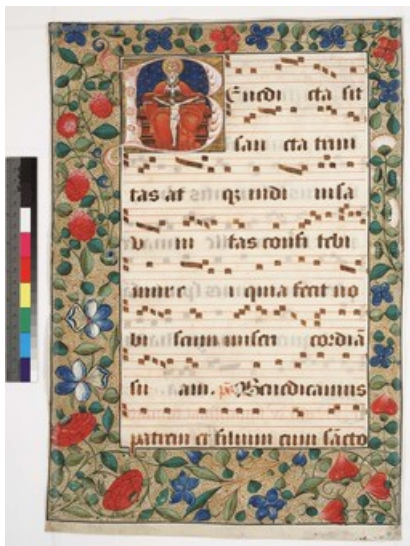 Benedi cta sit
san cta trini
tas at qȝ indi uisa
v ni tas confi tebi
mur e i quia fecit no
bis cum miseri cordiā
su am. p̄s Benedicamus
patrem et filium cum sācto